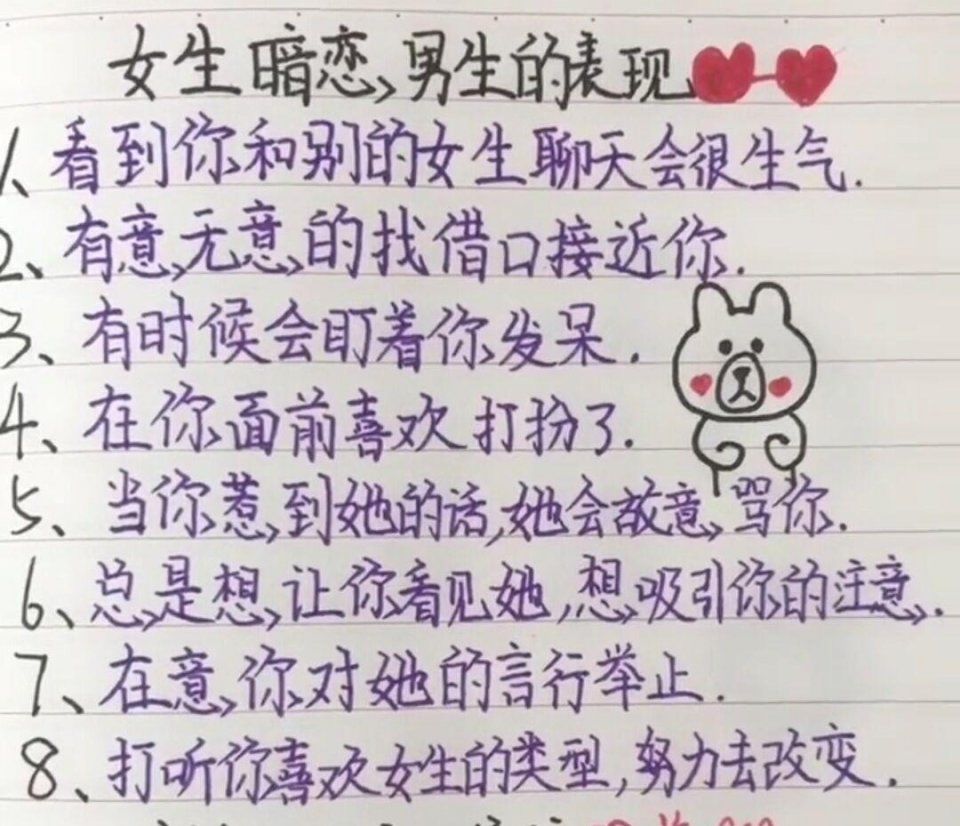 女生暗恋男生的表现
1、看到你和别的女生聊天会很生气.
2、有意无意的找借口接近你.
3、有时候会盯着你发呆.
4、在你面前喜欢打扮了.
5、当你惹到她的话,她会故意骂你.
6、总是想让你看见她,想吸引你的注意.
7、在意你对她的言行举止.
8、打听你喜欢女生的类型,努力去改变.